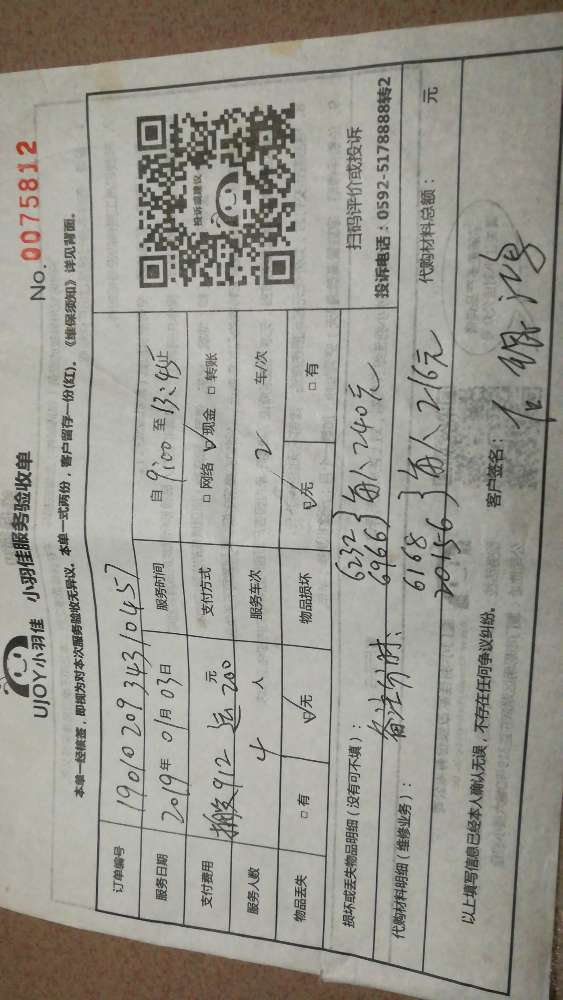 UJOY小羽佳 小羽佳服务验收单
No. 0075812
本单一经核签，即视为对本次服务验收无异议。本单一式两份，客户留存一份(红)。《维保须知》详见背面。
订单编号 1901020934310457
服务日期 2019年01月03日 服务时间 自 9:00 至 13:45止
支付费用 搬912 运200 元 支付方式 □ 网络 ☑ 现金 □ 转账
服务人数 4 人 服务车次 2 车/次
物品丢失 □ 有 ☑ 无 物品损坏 ☑ 无 □ 有
投诉或建议
扫码评价或投诉
投诉电话：0592-5178888转2
损坏或丢失物品明细（没有可不填）：
备注分时： 6232 6966 } 每人240元
代购材料明细（维修业务）：
6168 20156 } 每人216元
代购材料总额： 元
以上填写信息已经本人确认无误，不存在任何争议纠纷。
客户签名：